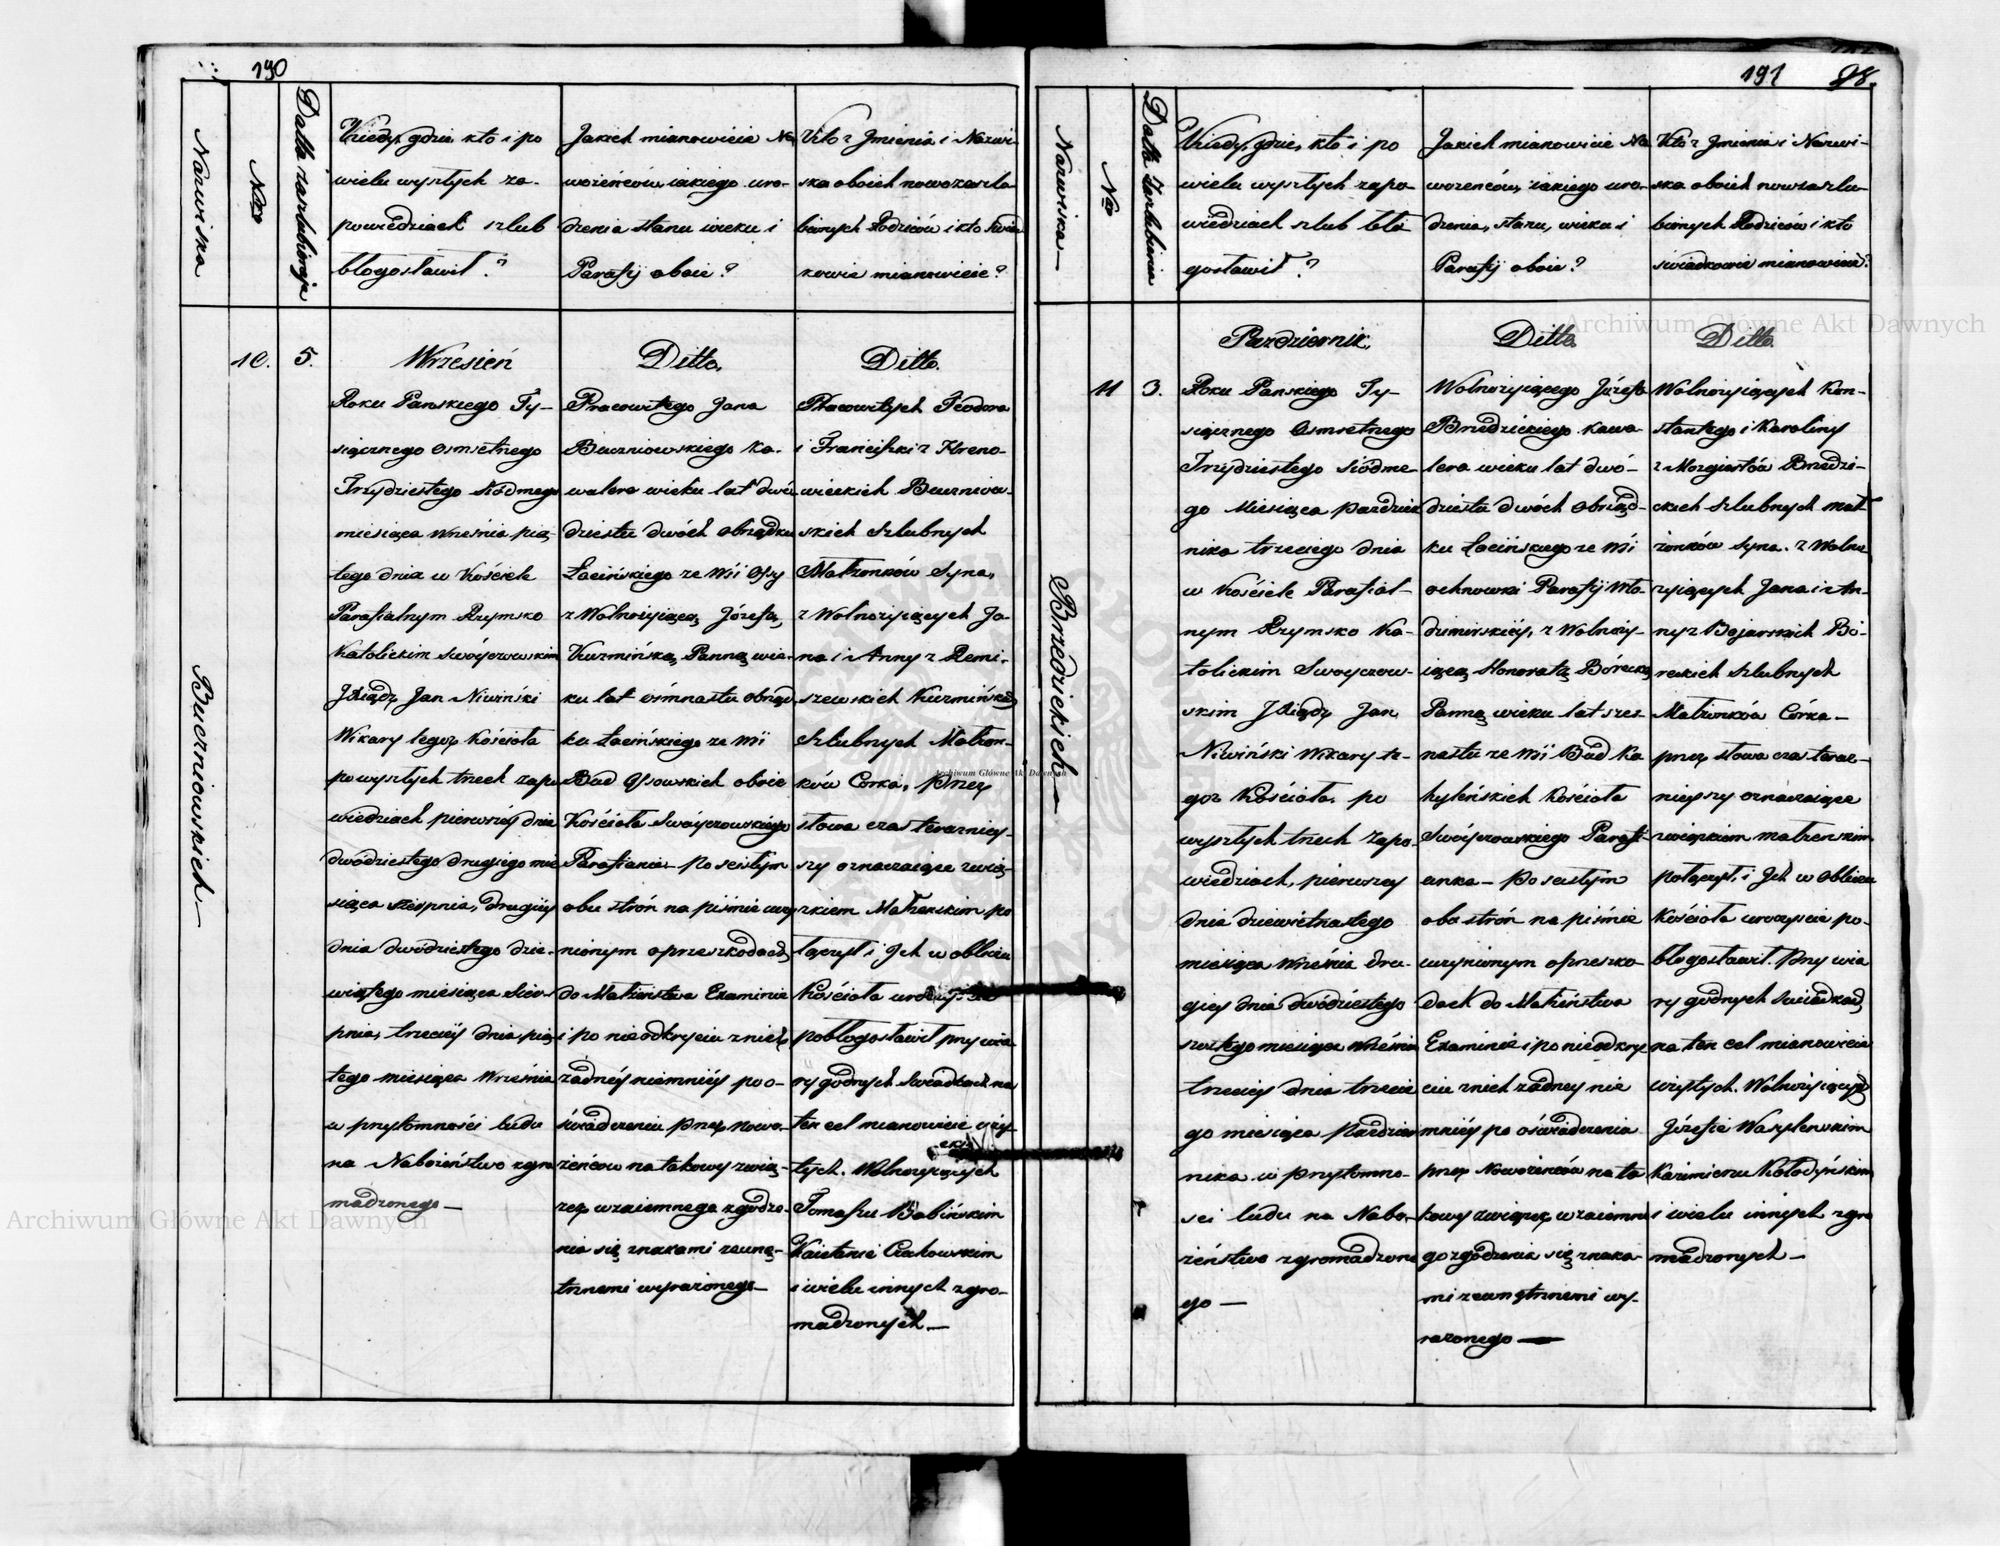 190
Nazwiska
Nro
Datta zaslubieja
Kiedy, gdzie, kto i po
wielu wyszłych za-
powiedziach szlub
błogosławił?
Jakich mianowicie No
wożeńców, iakiego uro-
dzenia stanu wieku i
Parafij oboie?
Kto z Jmienia i Nazwi-
ska oboich nowozaszlu-
bionych Rodziców i kto Świad
kowie mianowicie?
Buczniowskich
10.
5.
Wrzesień
Roku Panskiego Ty-
siącznego Osmsetnego
Trzydziestego Siódmego
miesiąca Września pią-
tego dnia w Kościele
Parafialnym Rzymsko
Katolickim Swóyczowskim
JXiądz Jan Niwiński
Wikary tegoż Kościoła
po wyszłych trzech zapo
wiedziach pierwszéy dnia
dwódziestego drugiego mie
siąca Sierpnia, drugiéy
dnia dwódziestego dzie-
wiątego miesiąca Sier-
pnia, trzeciéy dnia, pią-
tego miesiąca Września
w przytomności ludu
na Nabożeństwo zgro
madzonego —
Ditto.
Pracowitego Jana
Buczniowskiego Ka-
walera wieku lat dwó
dziestu dwóch obrządku
Łacińskiego ze Wsi Osy
z Wolnożyiącą Józefą
Kuzmińską, Panną wie-
ku lat óśmnastu obrząd
ku Łacińskiego ze Wsi
Bud Osowskich oboie
Kościoła Swóyczowskiego
Parafianie — Po ścisłym
obu strón na piśmie uczy
nionym o przeszkodach
do Małżeństwa Examinie
i po nieodkryciu z nich
żadnéy niemniéy po o-
świadczeniu przez nowo-
żeńców na takowy zwią-
zek wzaiemnego zgodze-
nia się znakami zewnę-
trznemi wyrażonego —
Ditto.
Pracowitych Teodora
i Franciszki z Hreno-
wieckich Buczniow-
skich Szlubnych
Małżonków Syna,
z Wolnożyiących Ja-
na i Anny z Remi-
szewskich Kuzmińskich
Szlubnych Małżon-
ków Córka, Przez
słowa czas teraźniey-
szy oznaczaiące zwią-
zkiem Małżeńskim po
łączył i Jch w obliczu
Kościoła
pobłogosławił przy wia-
ry godnych Swiadkach na
ten cel mianowicie uży
tych. Wolnożyiących
Tomaszu Babińskim
Kaietanie Czakowskim
i wielu innych zgro-
madzonych —
191
98.
Nazwiska —
Nro
Datta Zaslubienia
Kiedy, gdzie, kto i po
wielu wyszłych zapo-
wiedziach szlub bło
gosławił?
Jakich mianowicie No
wożeńców, iakiego uro-
dzenia, stanu, wieku i
Parafij oboie?
Kto z Jmienia i Nazwi-
ska oboich nowozaszlu-
bionych Rodziców i kto
świadkowie mianowicie?
Brzedzickich —
11
3.
Pazdziernik.
Roku Panskiego Ty-
siącznego Osmsetnego
Trzydziestego Siódme
go Miesiąca Pazdzier
nika trzeciego dnia
w Kościele Parafial-
nym Rzymsko Ka-
tolickim Swoyczow-
skim JXiądz Jan
Niwiński Wikary te-
goż Kościoła, po
wyszłych trzech zapo-
wiedziach, pierwszey
dnia dziewiętnastego
miesiąca Września dru-
giey dnia dwódziestego
szostego miesiąca Września
trzeciey dnia trzecie
go miesiąca Pazdzier
nika w przytomno-
sci ludu na Nabo-
żeństwo zgromadzone
go —
Ditto
Wolnożyiącego Józefa
Brzedzickiego Kawa-
lera wieku lat dwó-
dziestu dwóch obrząd-
ku Łacińskiego ze Wsi
ochnowki Parafij Wło-
dzimirskiéy, z Wolnoży-
iącą Honoratą Bórecką
Panną wieku lat szes-
nastu ze Wsi Bud Ka
hyleńskich Kościoła
Swóyczowskiego Parafi-
anka — Po scisłym
obu strón na piśmie
uczynionym o przeszko-
dach do Małżeństwa
Examinie i po nieodkry
ciu z nich żadney nie
mniéy po oświadczeniu
przez Nowożeńców na ta
kowy związek wzaiemne
go zgodzenia się znaka-
mi zewnętrznemi wy-
rażonego —
Ditto
Wolnożyiących Kon-
stantego i Karoliny
z Mozgiertów Brzedzi-
ckich Szlubnych mał
żonków Syna. z Wolno
żyiących Jana i An-
ny z Bojarskich Bo-
reckich Szlubnych
Małżonków Córka —
przez słowa czas teraz-
nieyszy oznaczaiące
związkiem małżenskim
połączył, i Jch w obliczu
Kościoła uroczyscie po-
błogosławił. Przy wia
ry godnych świadkach
na ten cel mianowicie
użytych. Wolnożyiących
Józefie Wasylewskim
Kazimierzu Kołodyńskim
i wielu innych zgro
madzonych —
Archiwum Główne Akt Dawnych
Archiwum Główne Akt Dawnych
Archiwum Główne Akt Dawnych